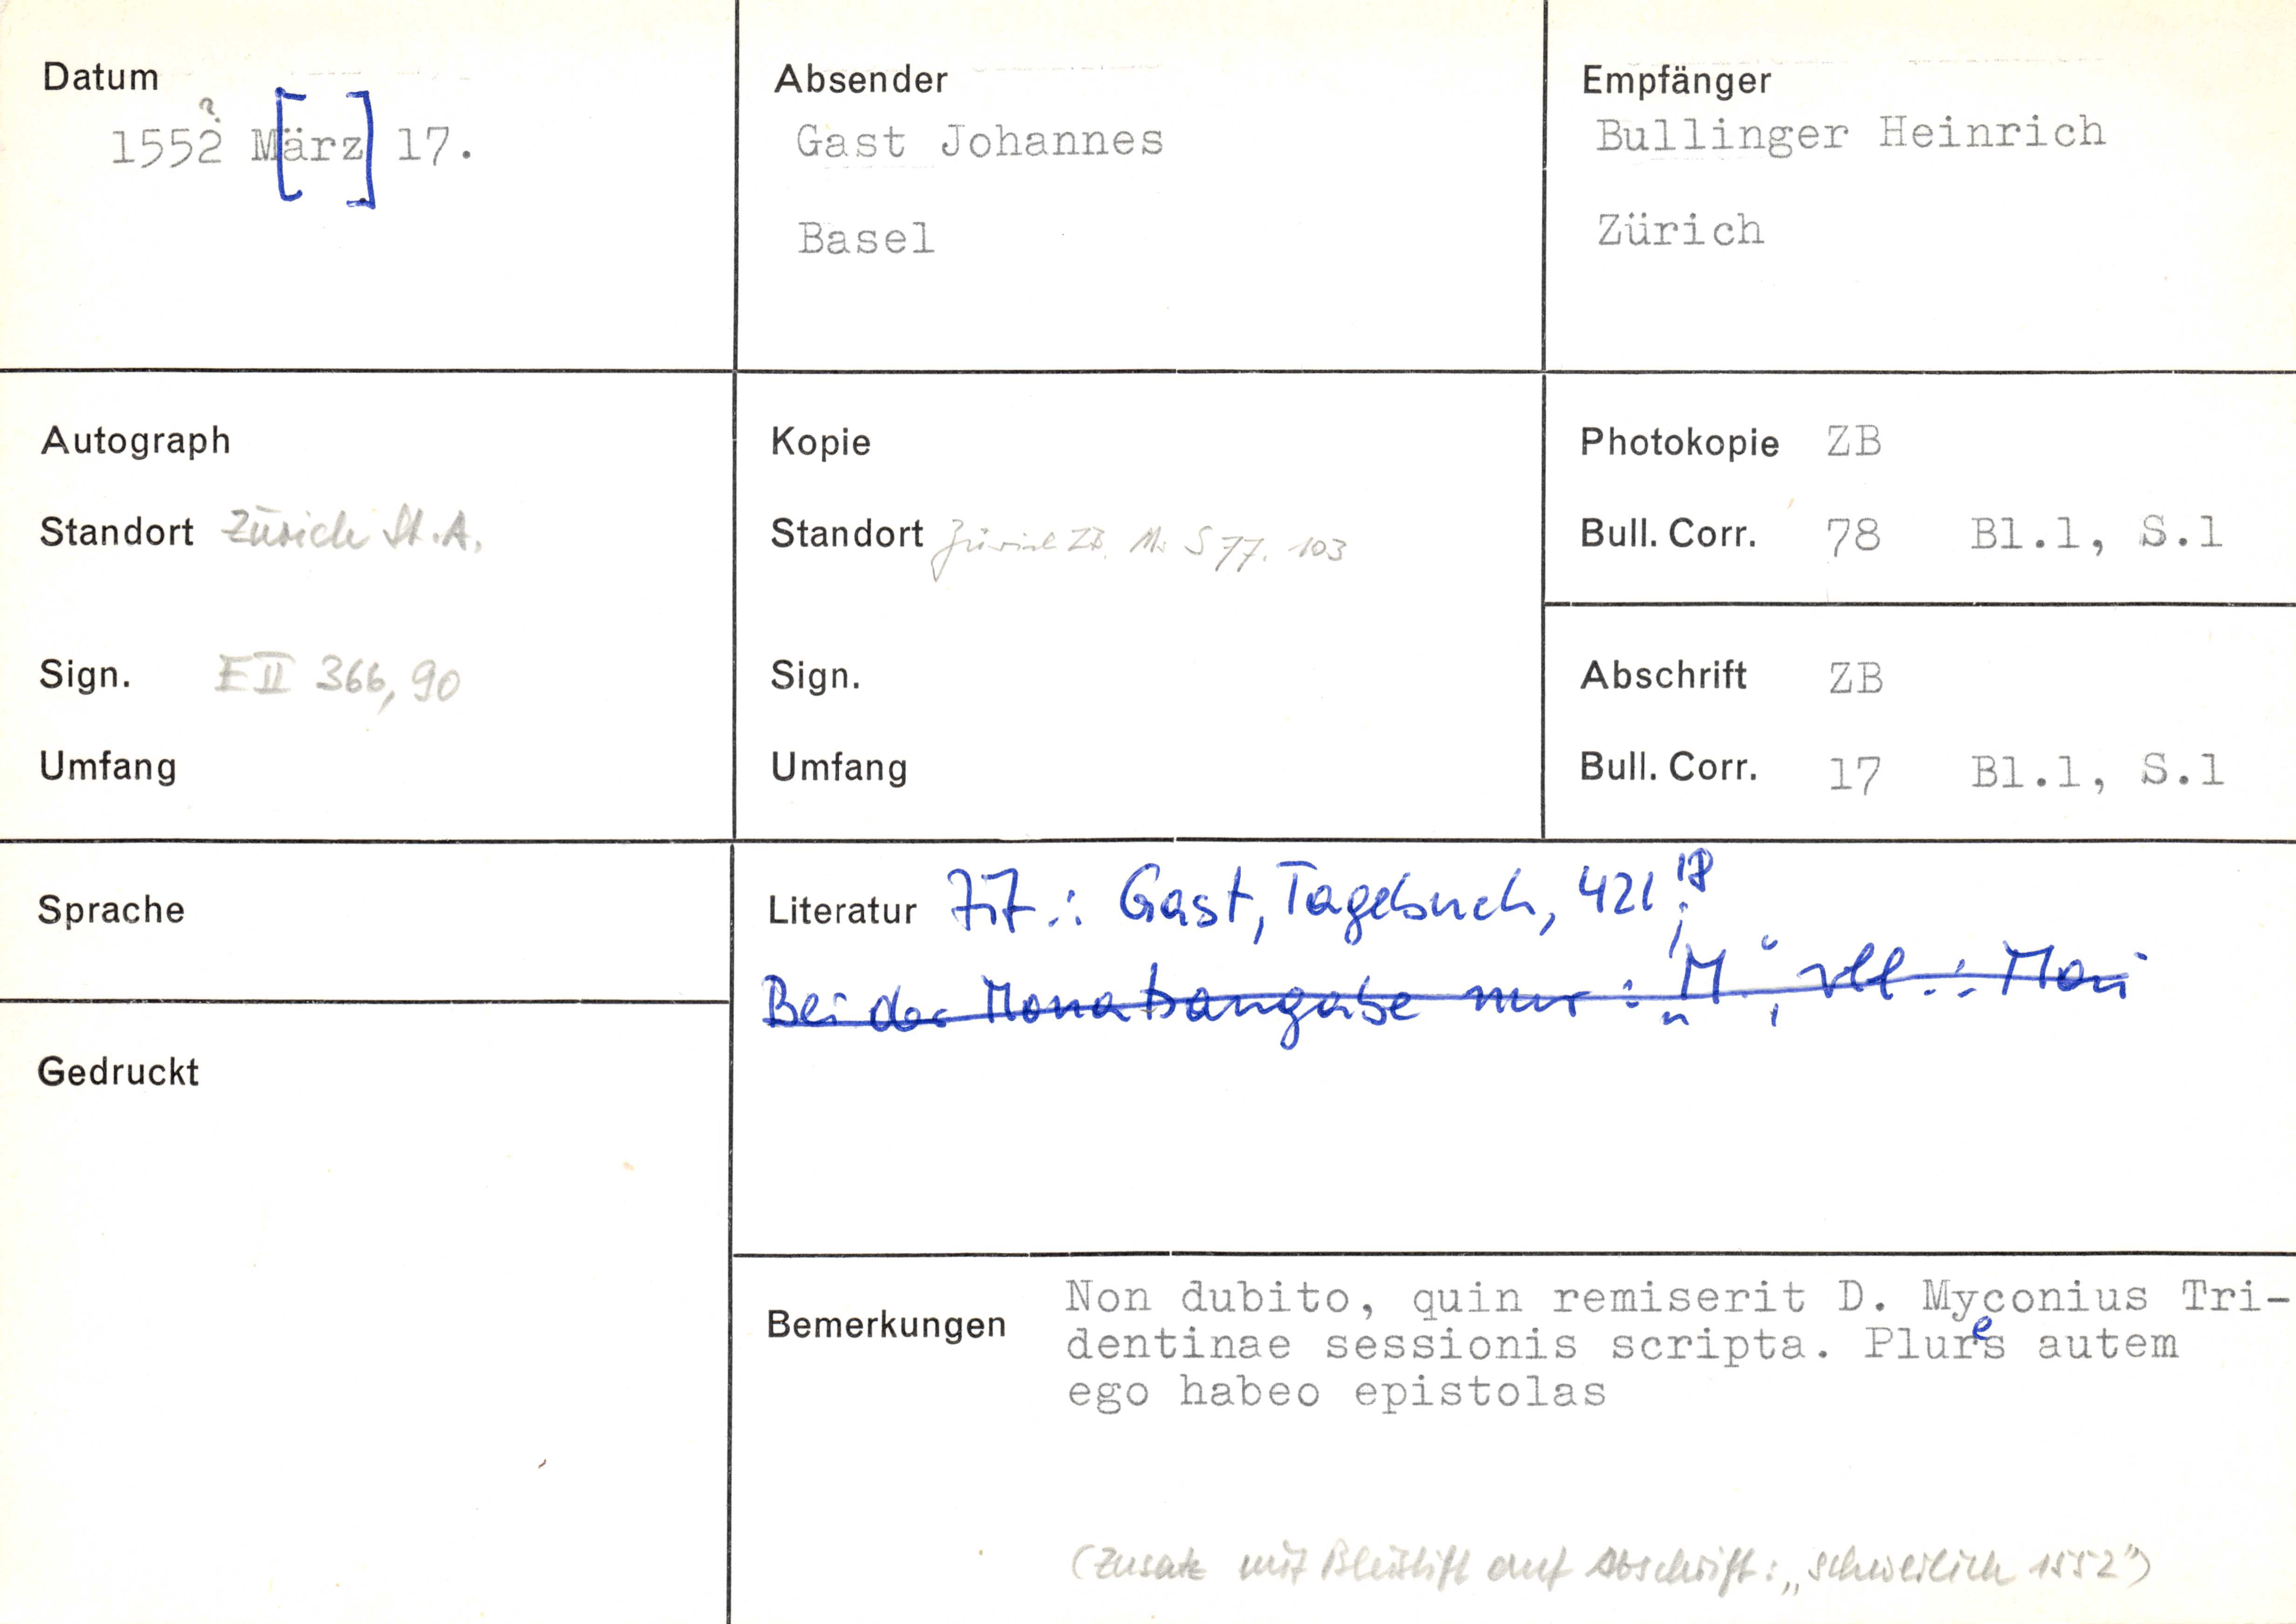 Datum
?
1552 M[ärz] 17.
Absender
Gast Johannes
Basel
Empfänger
Bullinger Heinrich
Zürich
Autograph
Standort Zürich St.A.
Sign. E II 366, 90
Umfang
Kopie
Standort Zürich ZB. Ms S 77. 103
Sign.
Umfang
Photokopie ZB
Bull. Corr. 78 Bl.1, S.1
Abschrift ZB
Bull. Corr. 17 Bl.1, S.1
Sprache
Gedruckt
Literatur Gast, Tagebuch, 421 18;
Bei der Monatsangabe nur: „M“, vll.: Mai
Bemerkungen
Non dubito, quin remiserit D. Myconius Tri-
dentinae sessionis scripta. Plures autem
ego habeo epistolas
(Zusatz mit Bleistift auf Abschrift: „schwerlich 1552")